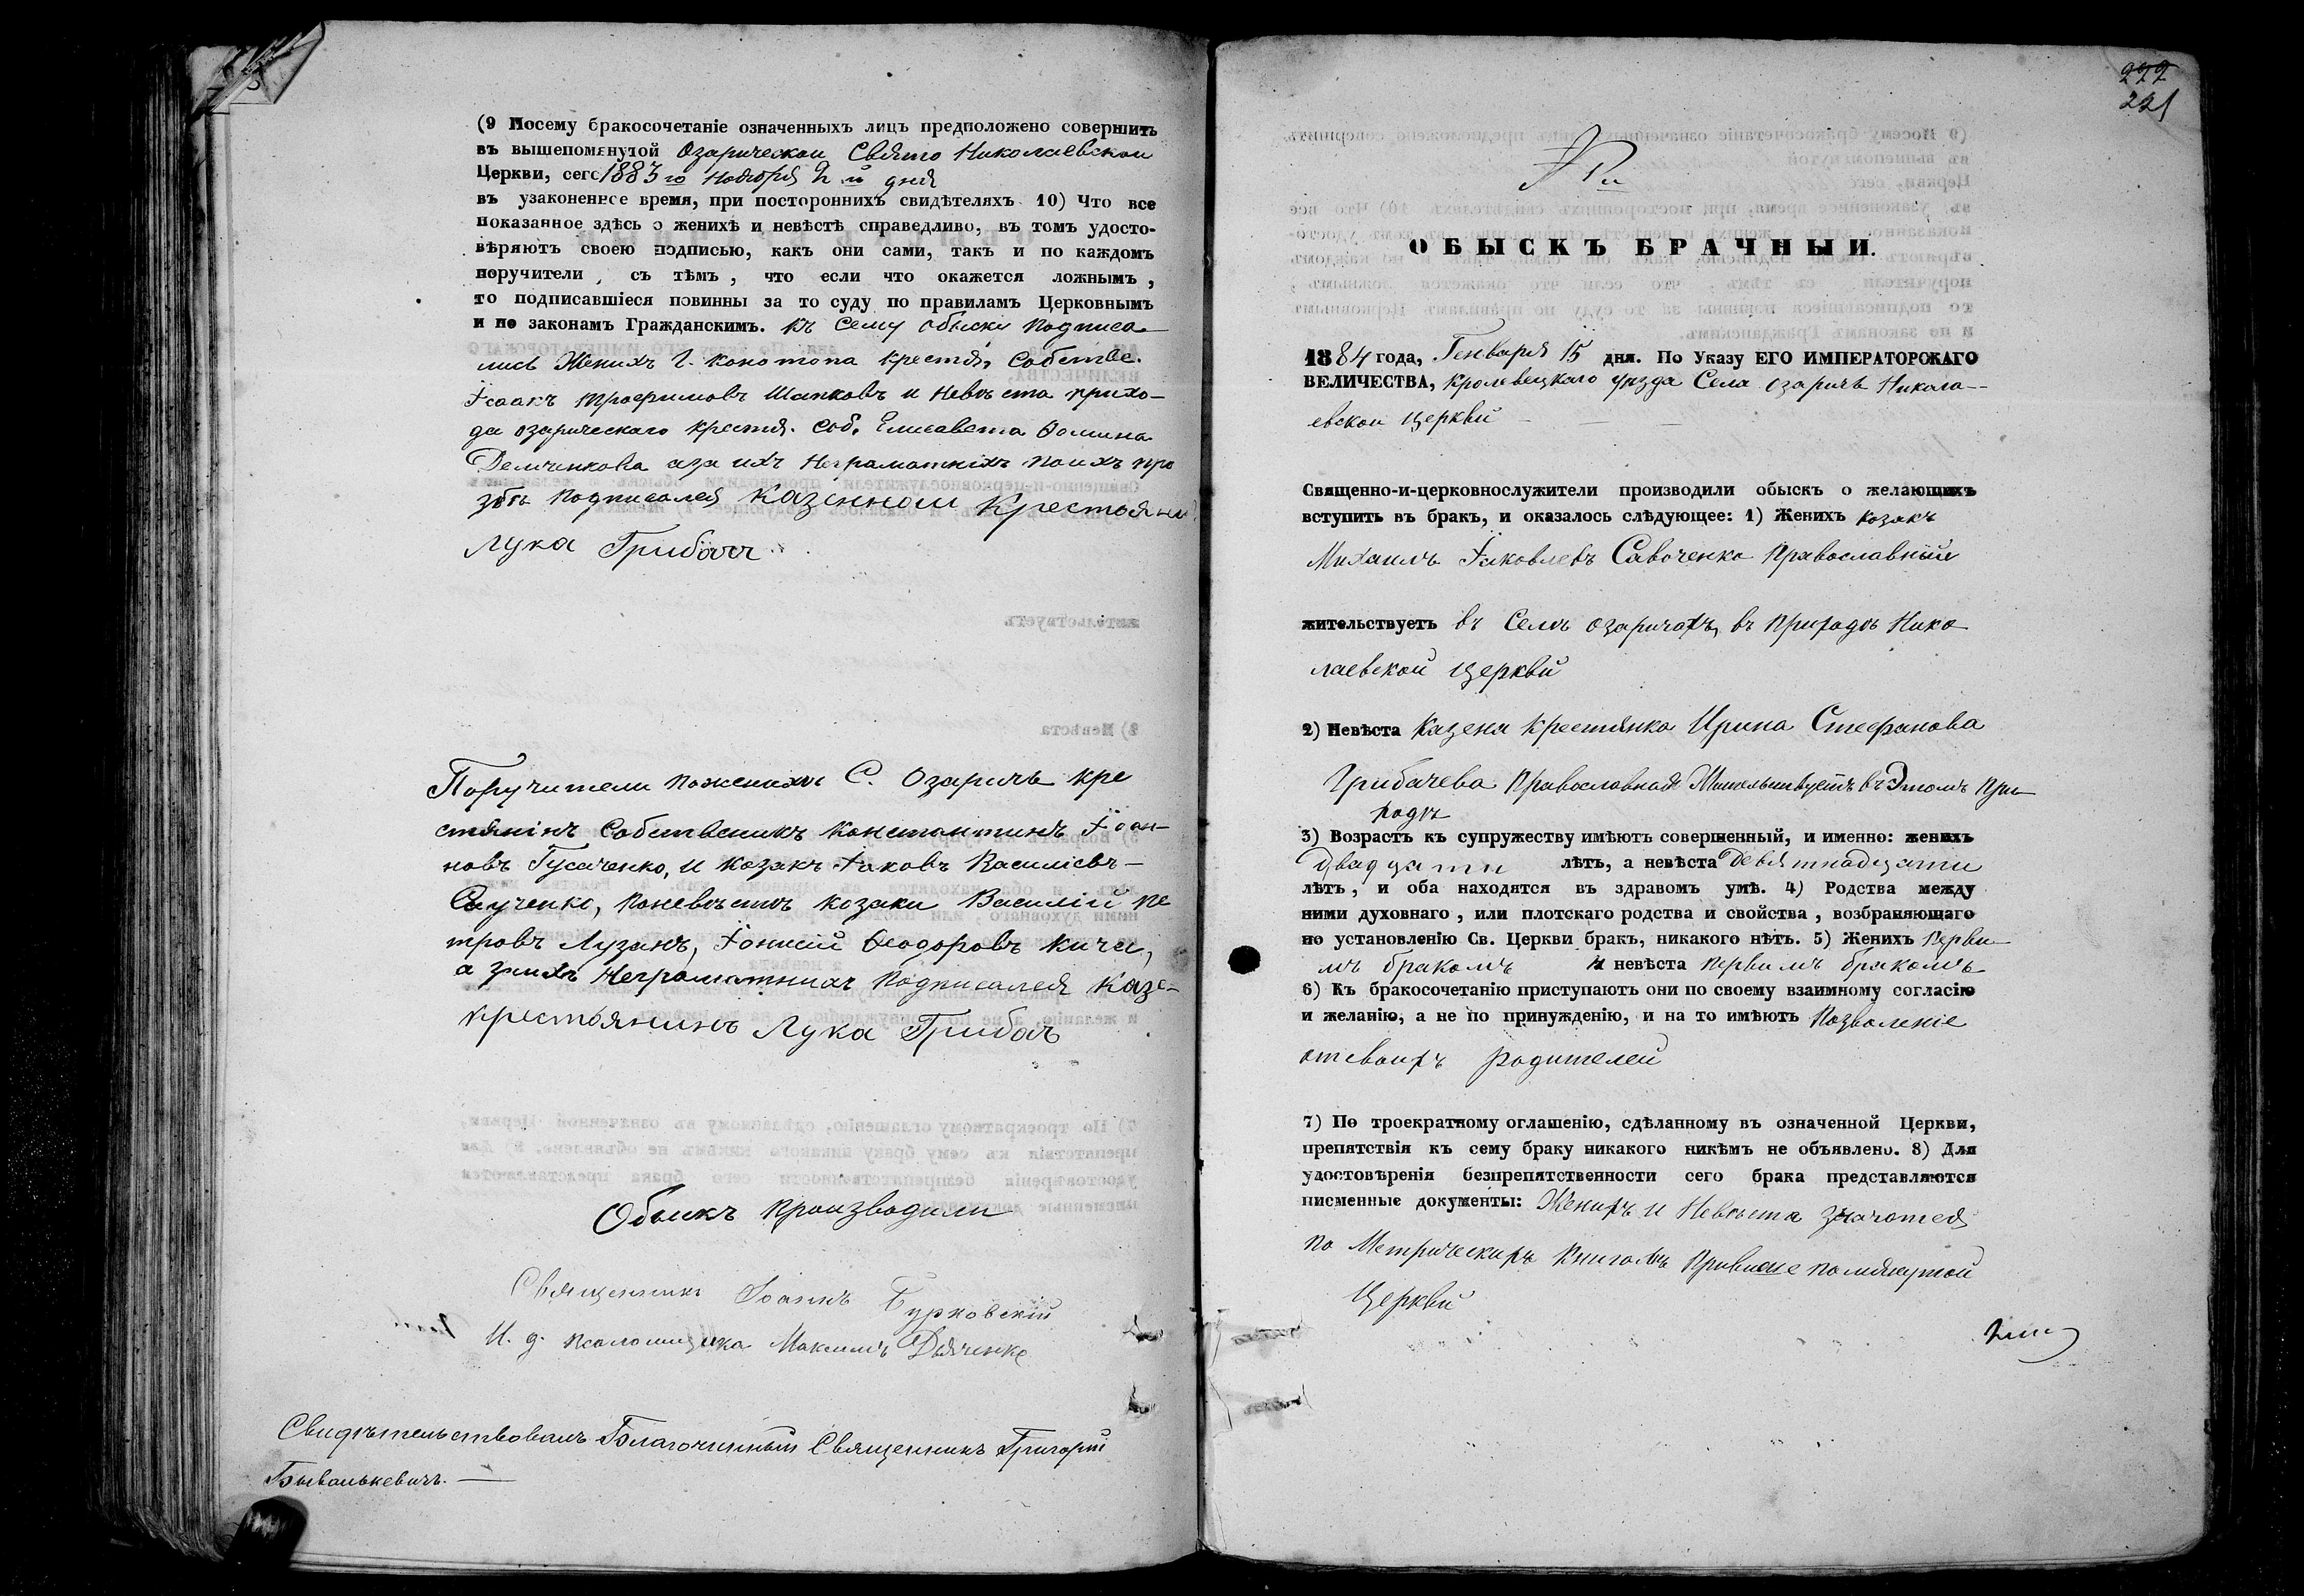 (9 Посему бракосочетаніе означенныхъ лицъ предположено совершить
въ вышепомянутой Озарической Свято Николаевской
Церкви, сего 1883 го Ноября 2 й дня
въ узаконенное время, при постороннихъ свидѣтеляхъ 10) Что все
показанное здѣсь о женихѣ и невѣстѣ справедливо, въ томъ удосто-
вѣряютъ своею подписью, какъ они сами, такъ и по каждомъ
поручители, съ тѣмъ, что если что окажется ложнымъ,
то подписавшіеся повинны за то суду по правиламъ Церковнымъ
и по законамъ Гражданскимъ. Къ сему обыску подписа-
лись Женихъ Г. Конотопа крестья, собстве.
Ісаакъ Трофимовъ Шапковъ и Невѣста прихо-
да озарическаго крестья. соб. Елисавета Ѳомина
Демченкова а за ихъ неграмотнихъ поихъ про
збѣ подписался Казенной Крестьянин
Лука Грибачъ
Поручители пожениху С. Озаричъ кре
стянінъ Собственикъ Константинъ Іоан-
новъ Гусаченко, и козакъ Іаковъ Василіевъ-
Саученко, поневѣстѣ козаки Василій Пе
тровъ Лузанъ, Іоникій Ѳеодоровъ Кича,
а зиихъ неграмотних подписался казе-
крестьянинъ Лука Грибачъ
Обыскъ производили
Священникъ Іоаннъ Бурковскій
И. д. псаломщика Максимъ Дьяченко
Свидѣтельствовалъ Благочинный Священникъ Григорій
Бывалькевичъ.
222
221
№
ОБЫСКЪ БРАЧНЫЙ.
1884 года, Генваря 15 дня. По Указу ЕГО ИМПЕРАТОРСКАГО
ВЕЛИЧЕСТВА, Кролевецкаго уѣзда Села Озаричъ Никола-
евской церкви
Священно-и-церковнослужители производили обыскъ о желающихъ
вступить въ бракъ, и оказалось слѣдующее: 1) Женихъ козакъ
Михаилъ Іаковлевъ Савоченко Православный
жительствуетъ въ Селѣ Озаричахъ, въ приходѣ Нико
лаевской церкви
2) Невѣста Казена крестянка Ирина Стефанова
Грибачева Православная Жительствуетъ въ Этомъ при
ходѣ
3) Возрастъ къ супружеству имѣютъ совершенный, и именно: женихъ
Двадцати лѣтъ, а невѣста Девятнадцати
лѣтъ, и оба находятся въ здравомъ умѣ. 4) Родства между
ними духовнаго, или плотскаго родства и свойства, возбраняющаго
по установленію Св. Церкви бракъ, никакого нѣтъ. 5) Женихъ Перви-
мъ бракомъ и невѣста первимъ бракомъ
6) Къ бракосочетанію приступаютъ они по своему взаимному согласію
и желанію, а не по принужденію, и на то имѣютъ Позволеніе
отсвоихъ родителей
7) По троекратному оглашенію, сдѣланному въ означенной Церкви,
препятствія къ сему браку никакого никѣмъ не объявлено. 8) Для
удостовѣренія безпрепятственности сего брака представляются
писменные документы: Женихъ и Невѣста значатся
по Метрическихъ Книгамъ привише помянутой
Церкви